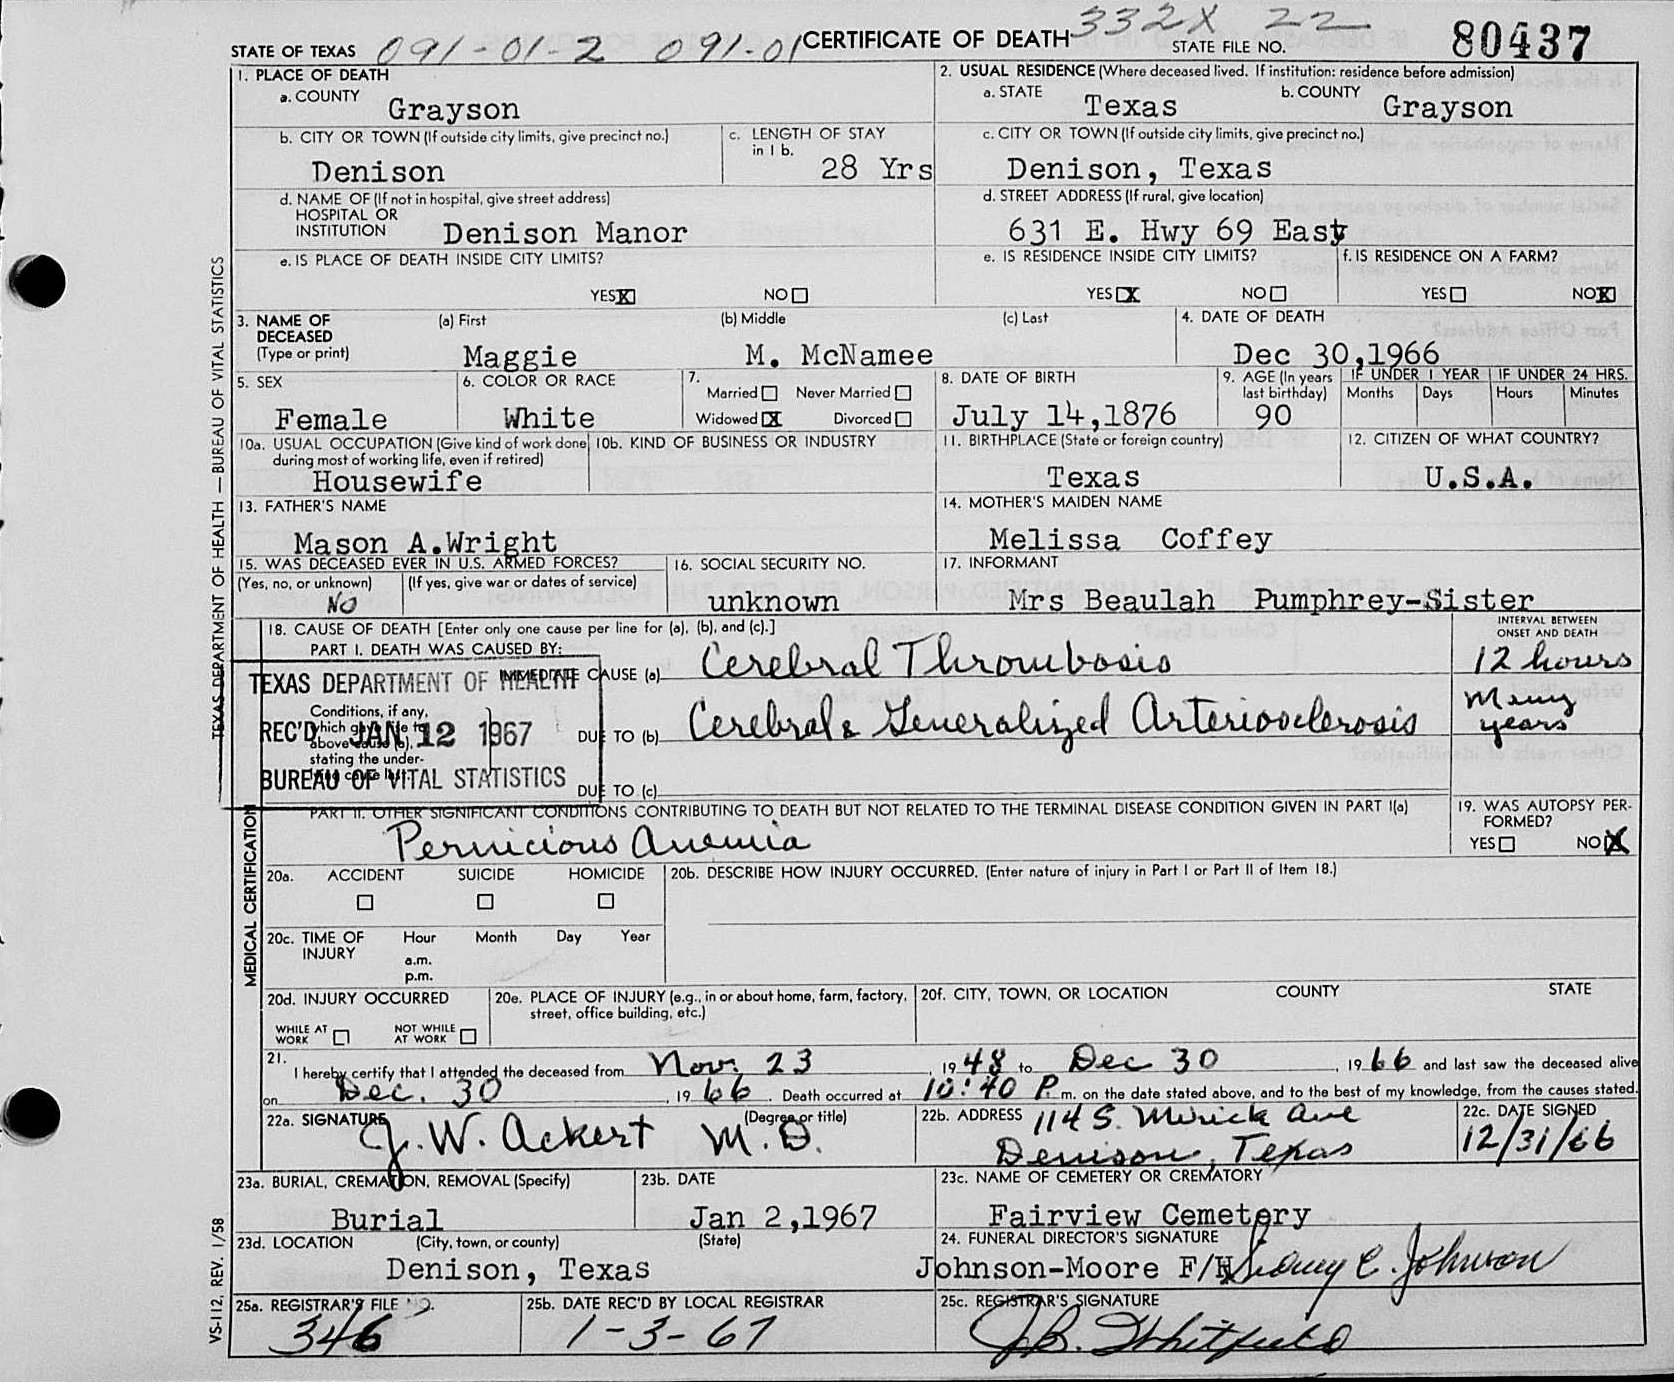 332X 22
STATE OF TEXAS 091-01-2 091-01 CERTIFICATE OF DEATH STATE FILE NO. 80437
1. PLACE OF DEATH
a. COUNTY Grayson
2. USUAL RESIDENCE (Where deceased lived. If institution: residence before admission)
a. STATE Texas b. COUNTY Grayson
b. CITY OR TOWN (If outside city limits, give precinct no.) Denison
c. LENGTH OF STAY in 1 b. 28 Yrs
c. CITY OR TOWN (If outside city limits, give precinct no.) Denison, Texas
d. NAME OF (If not in hospital, give street address)
HOSPITAL OR
INSTITUTION Denison Manor
d. STREET ADDRESS (If rural, give location)
631 E. Hwy 69 East
e. IS PLACE OF DEATH INSIDE CITY LIMITS?
YES X NO
e. IS RESIDENCE INSIDE CITY LIMITS?
YES X NO
f. IS RESIDENCE ON A FARM?
YES NO X
3. NAME OF DECEASED (Type or print)
(a) First (b) Middle (c) Last
Maggie M. McNamee
4. DATE OF DEATH
Dec 30,1966
5. SEX
Female
6. COLOR OR RACE
White
7. Married Never Married
Widowed X Divorced
8. DATE OF BIRTH
July 14,1876
9. AGE (In years last birthday)
90
IF UNDER 1 YEAR
Months Days
IF UNDER 24 HRS.
Hours Minutes
10a. USUAL OCCUPATION (Give kind of work done during most of working life, even if retired)
Housewife
10b. KIND OF BUSINESS OR INDUSTRY
11. BIRTHPLACE (State or foreign country)
Texas
12. CITIZEN OF WHAT COUNTRY?
U.S.A.
13. FATHER'S NAME
Mason A.Wright
14. MOTHER'S MAIDEN NAME
Melissa Coffey
15. WAS DECEASED EVER IN U.S. ARMED FORCES?
(Yes, no, or unknown) (If yes, give war or dates of service)
NO
16. SOCIAL SECURITY NO.
unknown
17. INFORMANT
Mrs Beaulah Pumphrey-Sister
18. CAUSE OF DEATH [Enter only one cause per line for (a), (b), and (c).]
PART I. DEATH WAS CAUSED BY:
IMMEDIATE CAUSE (a) Cerebral Thrombosis
INTERVAL BETWEEN ONSET AND DEATH
12 hours
Conditions, if any, which gave rise to above cause (a), stating the underlying cause last.
DUE TO (b) Cerebral & Generalized Arteriosclerosis
Many years
DUE TO (c)
TEXAS DEPARTMENT OF HEALTH
REC'D JAN 12 1967
BUREAU OF VITAL STATISTICS
PART II. OTHER SIGNIFICANT CONDITIONS CONTRIBUTING TO DEATH BUT NOT RELATED TO THE TERMINAL DISEASE CONDITION GIVEN IN PART I(a)
Pernicious Anemia
19. WAS AUTOPSY PERFORMED?
YES NO X
20a. ACCIDENT SUICIDE HOMICIDE
20b. DESCRIBE HOW INJURY OCCURRED. (Enter nature of injury in Part I or Part II of Item 18.)
20c. TIME OF INJURY Hour Month Day Year
a.m.
p.m.
20d. INJURY OCCURRED
WHILE AT WORK NOT WHILE AT WORK
20e. PLACE OF INJURY (e.g., in or about home, farm, factory, street, office building, etc.)
20f. CITY, TOWN, OR LOCATION COUNTY STATE
21. I hereby certify that I attended the deceased from Nov. 23, 1948 to Dec 30, 1966 and last saw the deceased alive
on Dec. 30, 1966. Death occurred at 10:40 P.m. on the date stated above, and to the best of my knowledge, from the causes stated.
22a. SIGNATURE (Degree or title)
J. W. Ackert M.D.
22b. ADDRESS 114 S. Mirick Ave
Denison, Texas
22c. DATE SIGNED
12/31/66
23a. BURIAL, CREMATION, REMOVAL (Specify)
Burial
23b. DATE
Jan 2,1967
23c. NAME OF CEMETERY OR CREMATORY
Fairview Cemetery
23d. LOCATION (City, town, or county) (State)
Denison, Texas
24. FUNERAL DIRECTOR'S SIGNATURE
Johnson-Moore F/H Sidney C. Johnson
25a. REGISTRAR'S FILE NO.
346
25b. DATE REC'D BY LOCAL REGISTRAR
1-3-67
25c. REGISTRAR'S SIGNATURE
J.B. Whitfield
TEXAS DEPARTMENT OF HEALTH — BUREAU OF VITAL STATISTICS
MEDICAL CERTIFICATION
VS-112, REV. 1/58